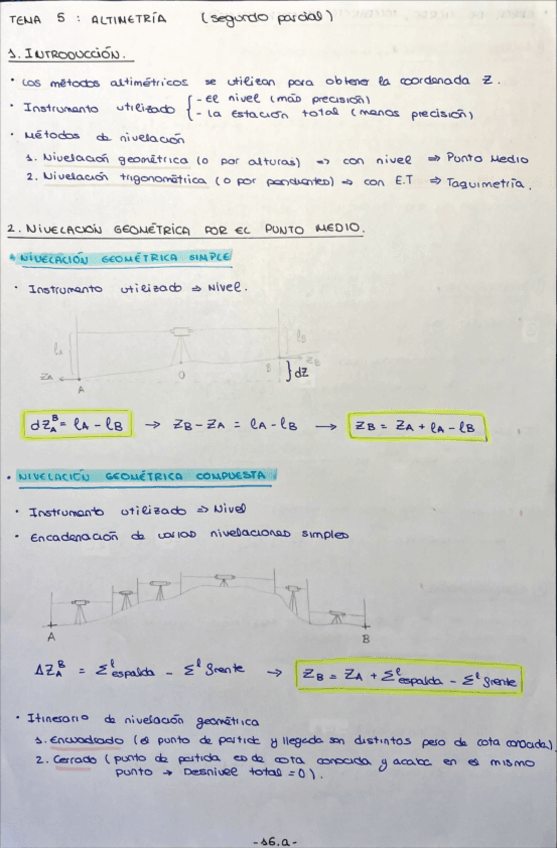 TEMA 5 : ALTIMETRÍA (segundo parcial)
1. INTRODUCCIÓN.
• Los métodos altimétricos se utilizan para obtener la coordenada Z.
• Instrumento utilizado { - el nivel (más precisión)
- la estación total (menos precisión)
• Métodos de nivelación
1. Nivelación geométrica (o por alturas) => con nivel => Punto Medio
2. Nivelación trigonométrica (o por pendientes) => con E.T => Taquimetría.
2. NIVELACIÓN GEOMÉTRICA POR EL PUNTO MEDIO.
• NIVELACIÓN GEOMÉTRICA SIMPLE
• Instrumento utilizado => Nivel.
lA lB
ZA A O B ZB } dZ
dZ_A^B = lA - lB → ZB - ZA = lA - lB → ZB = ZA + lA - lB
• NIVELACIÓN GEOMÉTRICA COMPUESTA
• Instrumento utilizado => Nivel
• Encadenación de varias nivelaciones simples
A B
ΔZ_A^B = Σ^l espalda - Σ^l frente → ZB = ZA + Σ^l espalda - Σ^l frente
• Itinerario de nivelación geométrica
1. Encuadrado (el punto de partida y llegada son distintos pero de cota conocida).
2. Cerrado (punto de partida es de cota conocida y acaba en el mismo
punto → Desnivel total = 0).
-16.a-